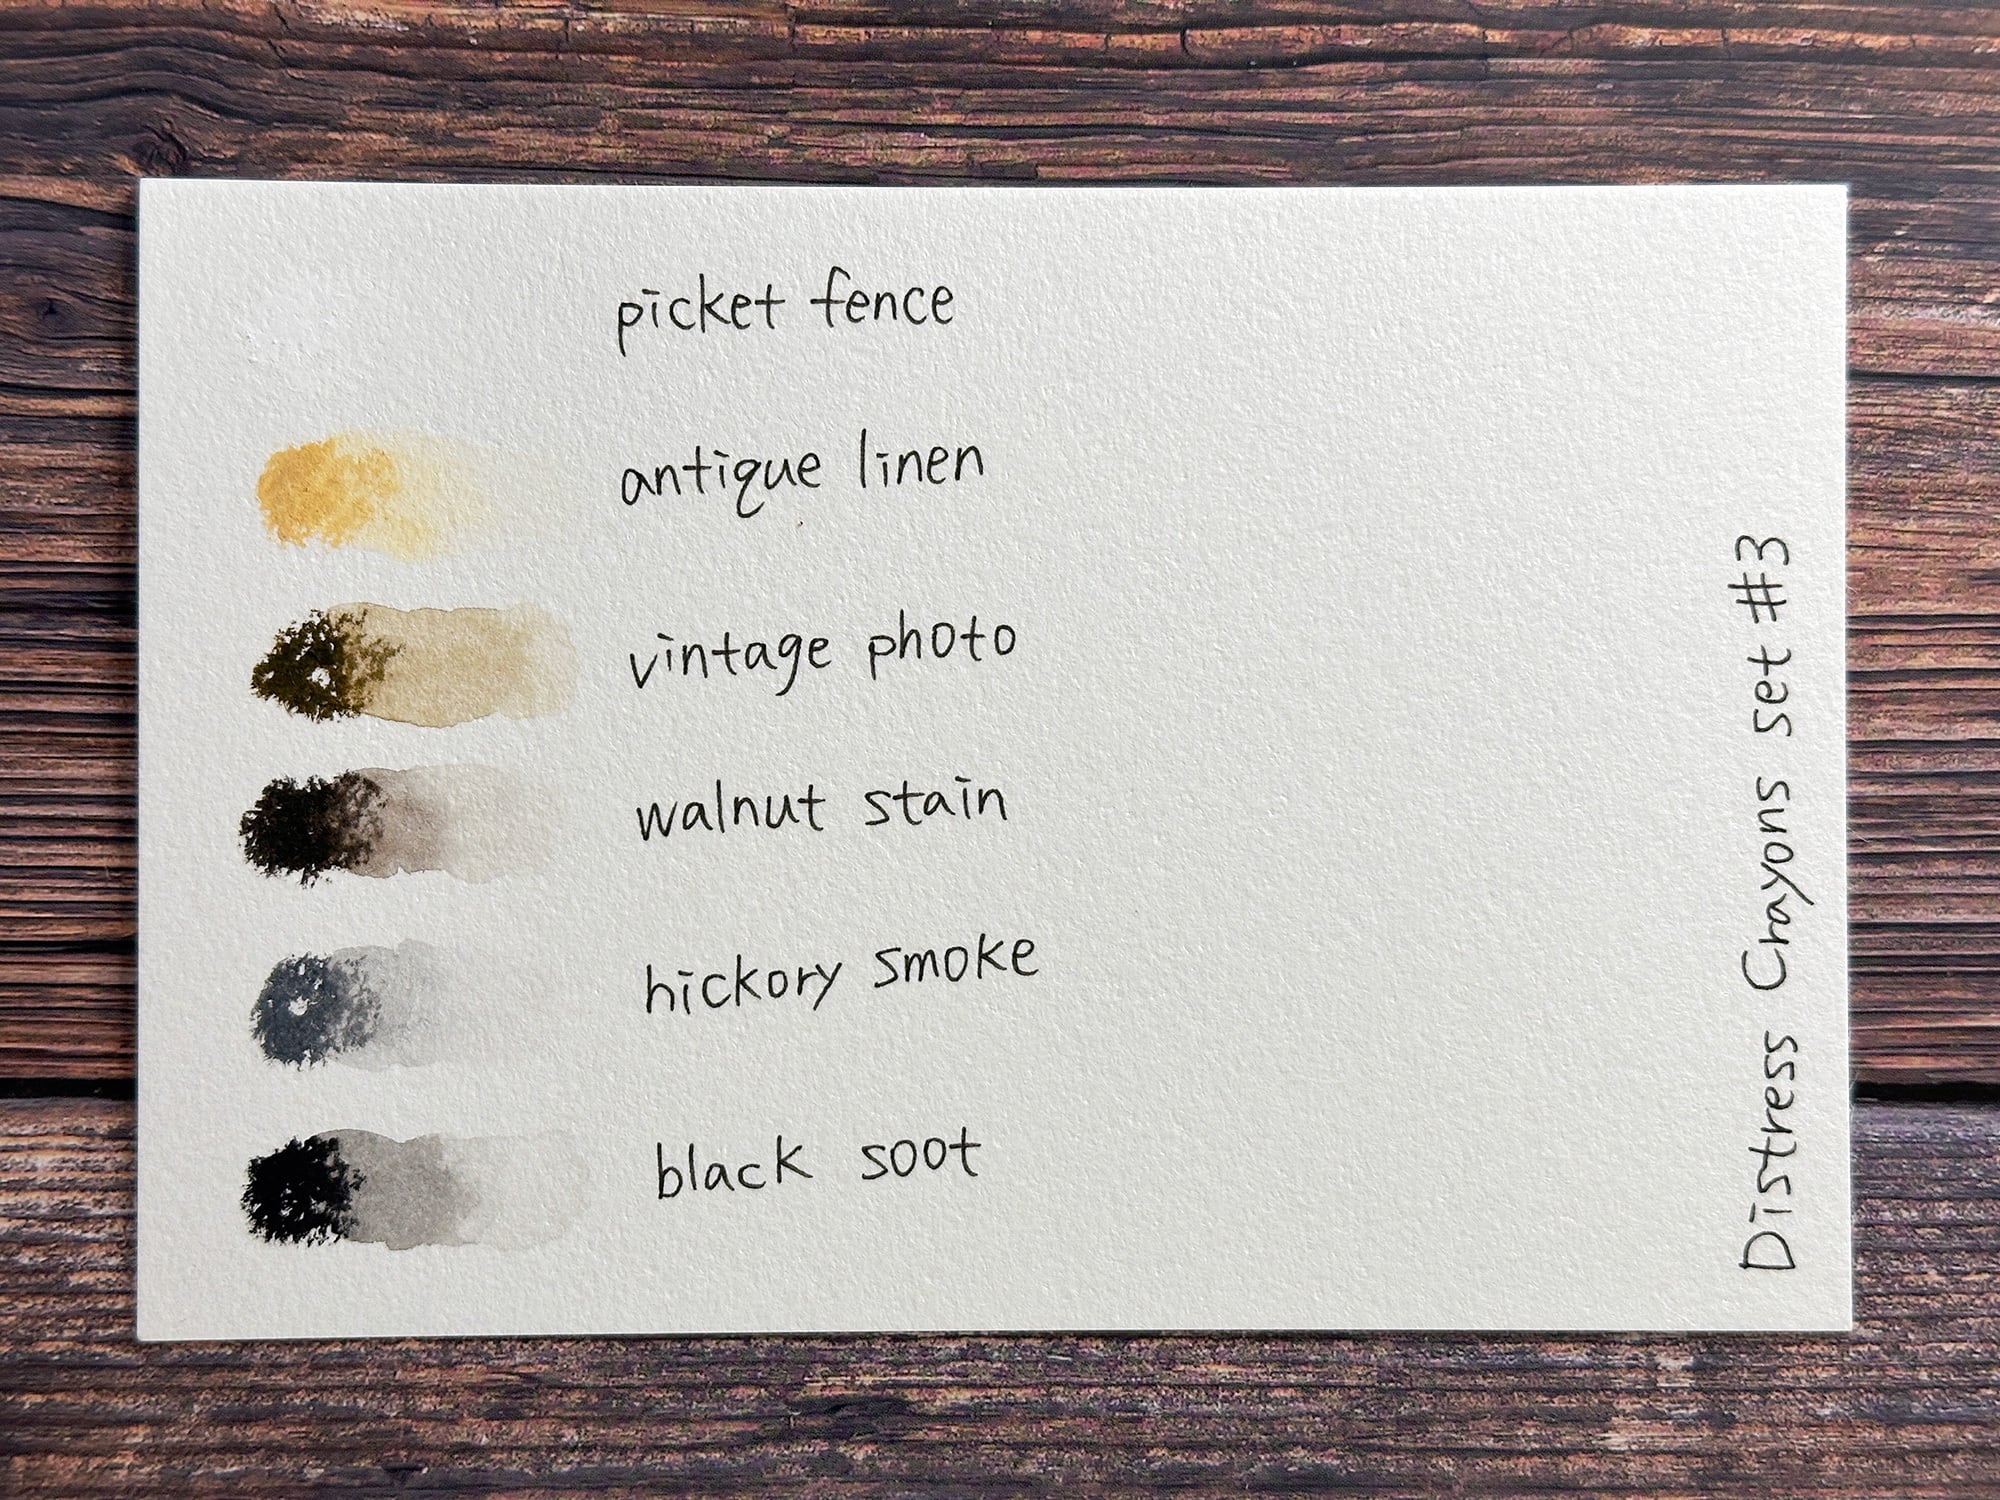 picket fence
antique linen
vintage photo
walnut stain
hickory smoke
black soot
Distress Crayons set #3